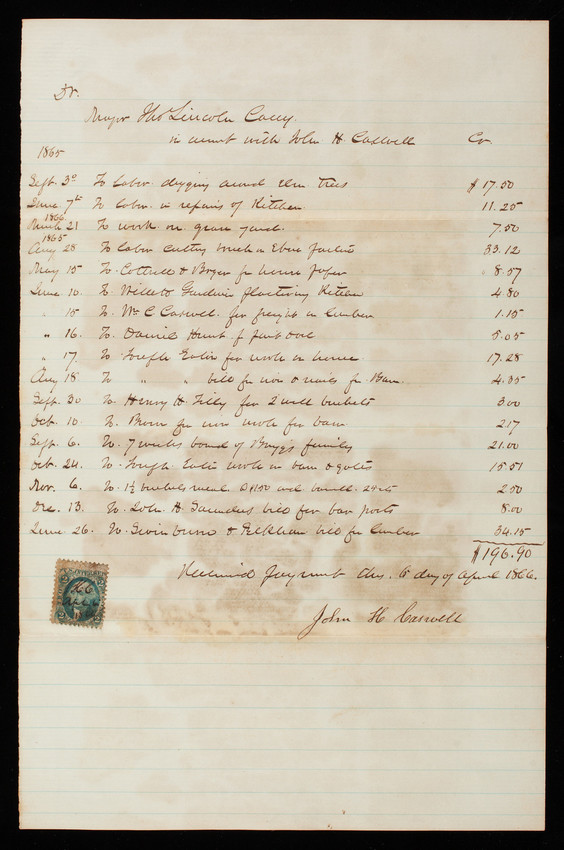 Dr.
Major Tho Lincoln Casey
in account with John H. Caswell Cr.
1865
Sept. 3d To labor digging around Elm trees $17.50
June. 7th To labor in repairs of Kitchen 11.25
1866
March 21 To work on grave yard. 7.50
1865
Aug 28 To labor cutting brush in 33.12
May 15 To Cottrell & for house paper " 8.57
June. 10 To Willett plastering Kitchen 4.80
" 15 To. Wm C Caswell. for freight on lumber 1.15
" 16. To. Daniel Hunt f paint 5.05
" 17. To Joseph Eaton for work on house 17.28
Aug 18 To " " bill for iron & nails for Barn 4.35
Sept. 30 To Henry H. for 2 well buckets 3.00
Oct. 10 To. for iron work for barn 2.17
Sept. 6. To. 7 weeks board of Briggs family 21.00
Oct. 24. To. Joseph Eaton work on barn & gates 15.51
Nov. 6. To 1½ bushels meal. $1.50 2.50
Dec. 13. To. John H. Saunders bill for bar posts 8.00
June 26. To. Swinburne & Peckham bill for lumber 34.15
$196.90
Received payment this 6 day of April 1866.
John H Caswell
2 2